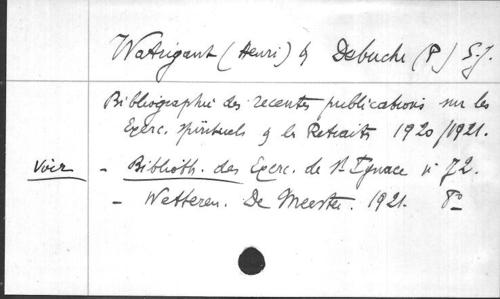 Watrigant (Henri) & Debuchy (P) S.J.
Bibliographie des recentes publications sur les
Exerc. spirituels & les Retraites 1920/1921.
Voir - Biblioth. des Exerc. de St Ignace n° 72.
- Wetteren. De Meester. 1921. 8°